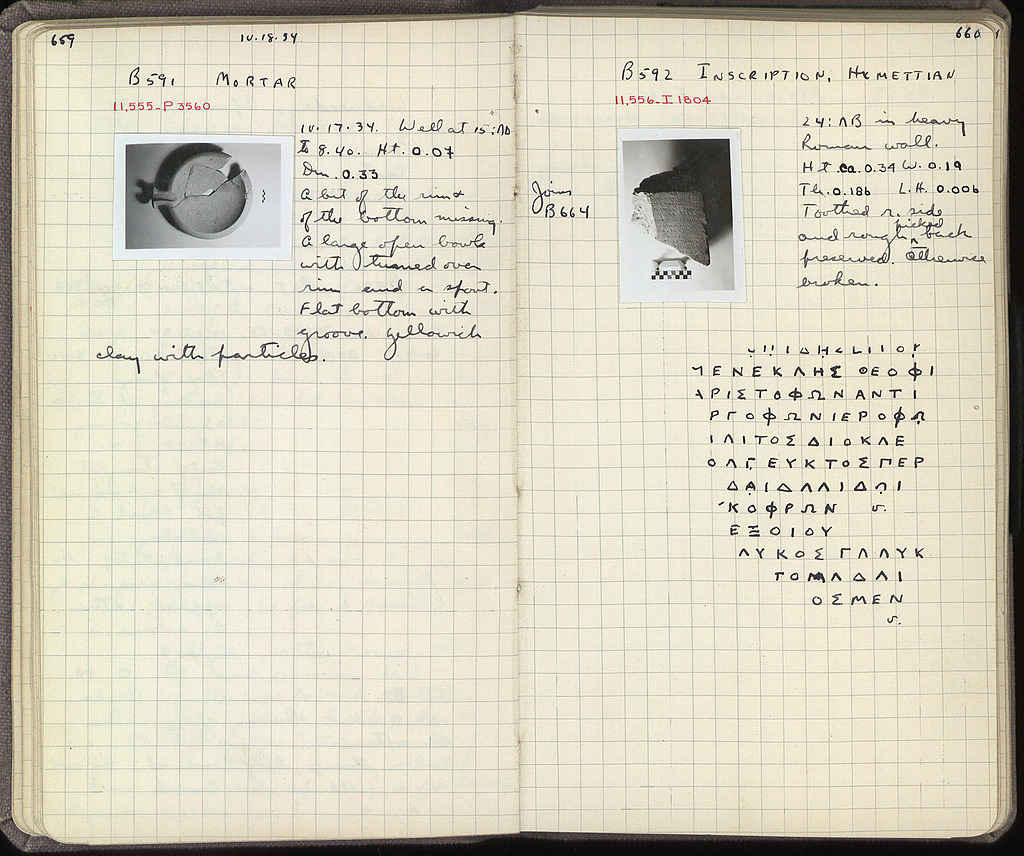 659
IV.18.34
B591 MORTAR
11,555-P3560
IV.17.34. Well at 15:ΛΔ
To 8.40. Ht. 0.07
Dm. 0.33
A bit of the rim &
of the bottom missing.
A large open bowl
with turned over
rim and a spout.
Flat bottom with
groove. Yellowish
clay with particles.
660
B592 INSCRIPTION, HYMETTIAN
11,556-I1804
Joins
B664
24:ΛΒ in heavy
Roman wall.
Ht ca. 0.34 W. 0.19
Th. 0.186 L.H. 0.006
Toothed r. side
and rough picked back
preserved. Otherwise
broken.
ΕΝΕΚΛΗΣ ΘΕΟΦΙ
ΑΡΙΣΤΟΦΩΝΑΝΤΙ
ΡΓΟΦΩΝΙΕΡΟΦΩ
ΙΛΙΤΟΣΔΙΟΚΛΕ
ΟΛΓΕΥΚΤΟΣΠΕΡ
ΔΑΙΔΑΛΙΔΩΙ
ΚΟΦΡΩΝ v.
ΕΞΟΙΟΥ
ΛΥΚΟΣ ΓΛΑΥΚ
ΤΟΜΑΔΑΙ
ΟΣΜΕΝ
v.